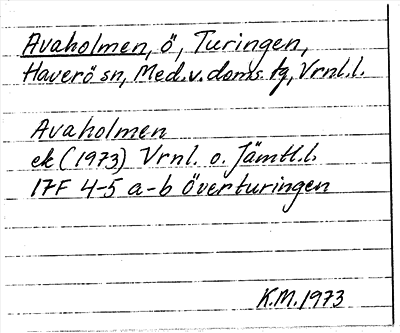 Avaholmen, ö, Turingen,
Haverö sn, Med.v.doms.tg, Vrnl.l.
Avaholmen
ek (1973) Vrnl. o. Jämtl.l.
17F 4-5 a-b Överturingen
K.M. 1973